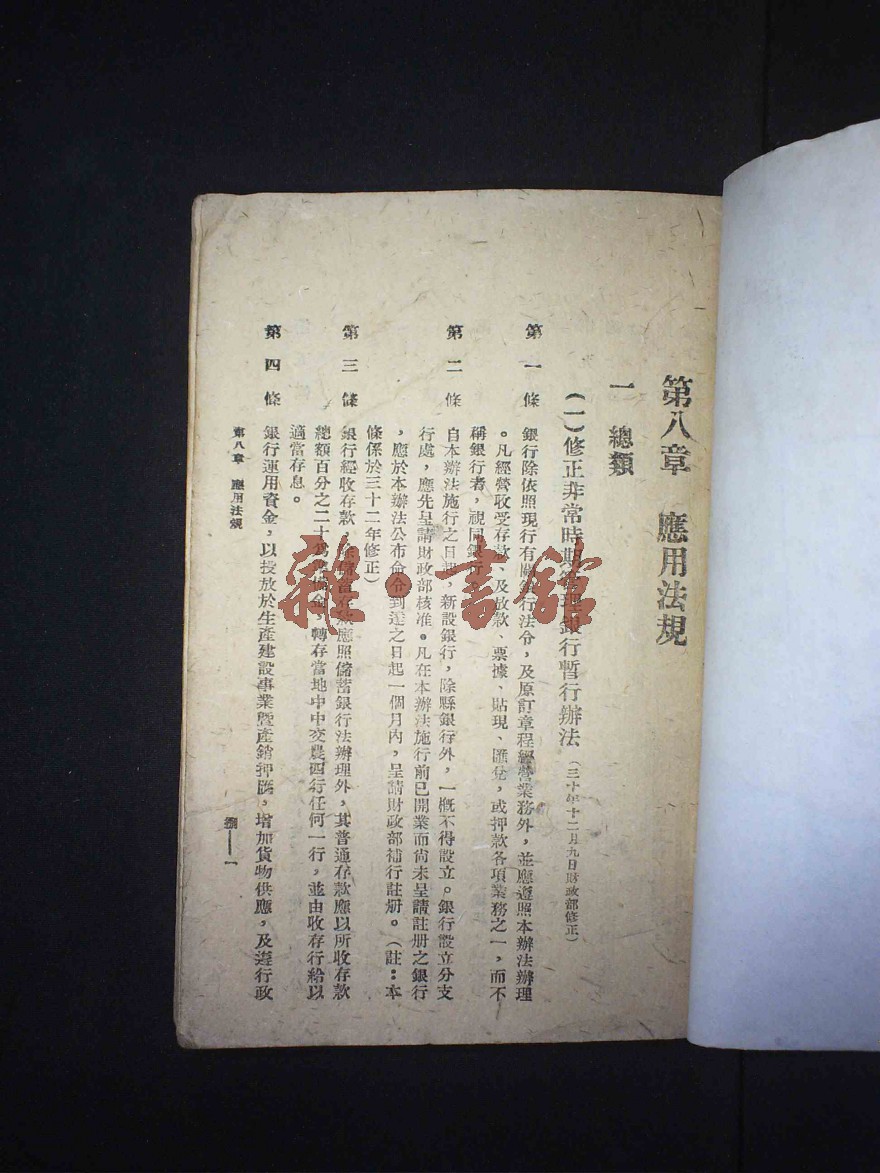 第八章　應用法規
一　總類
(一)修正非常時期管理銀行暫行辦法(三十年十二月九日財政部修正)
第一條　銀行除依照現行有關銀行法令，及原訂章程經營業務外，並應遵照本辦法辦理
。凡經營收受存款、及放款、票據、貼現、匯兌，或押款各項業務之一，而不
稱銀行者，視同銀行
第二條　自本辦法施行之日起，新設銀行，除縣銀行外，一概不得設立。銀行設立分支
行處，應先呈請財政部核准。凡在本辦法施行前已開業而尚未呈請註册之銀行
，應於本辦法公布命令到達之日起一個月內，呈請財政部補行註册。(註：本
條係於三十二年修正)
第三條　銀行經收存款，除儲蓄存款應照儲蓄銀行法辦理外，其普通存款應以所收存款
總額百分之二十為準備金，轉存當地中中交農四行任何一行，並由收存行給以
適當存息。
第四條　銀行運用資金，以投放於生產建設事業暨產銷押匯，增加貨物供應，及遵行政
第八章　應用法規　捌——一
雜·書館